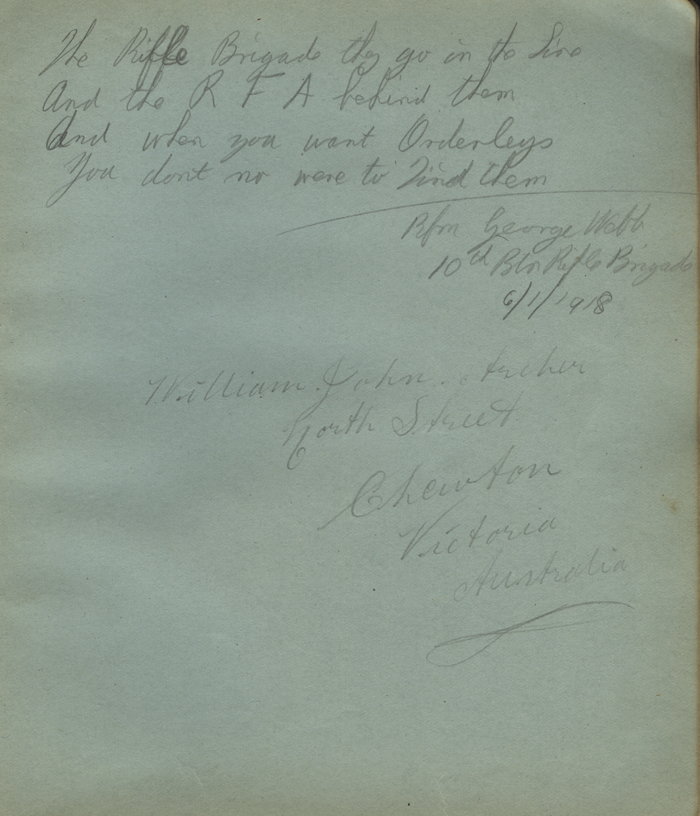 The Rifle Brigade they go in the Line
And the R F A behind them
And when you want Orderleys
You dont no were to find them
Rfm George Webb
10th Btn Rifle Brigade
6/1/1918
William John Archer
North Street
Chewton
Victoria
Australia